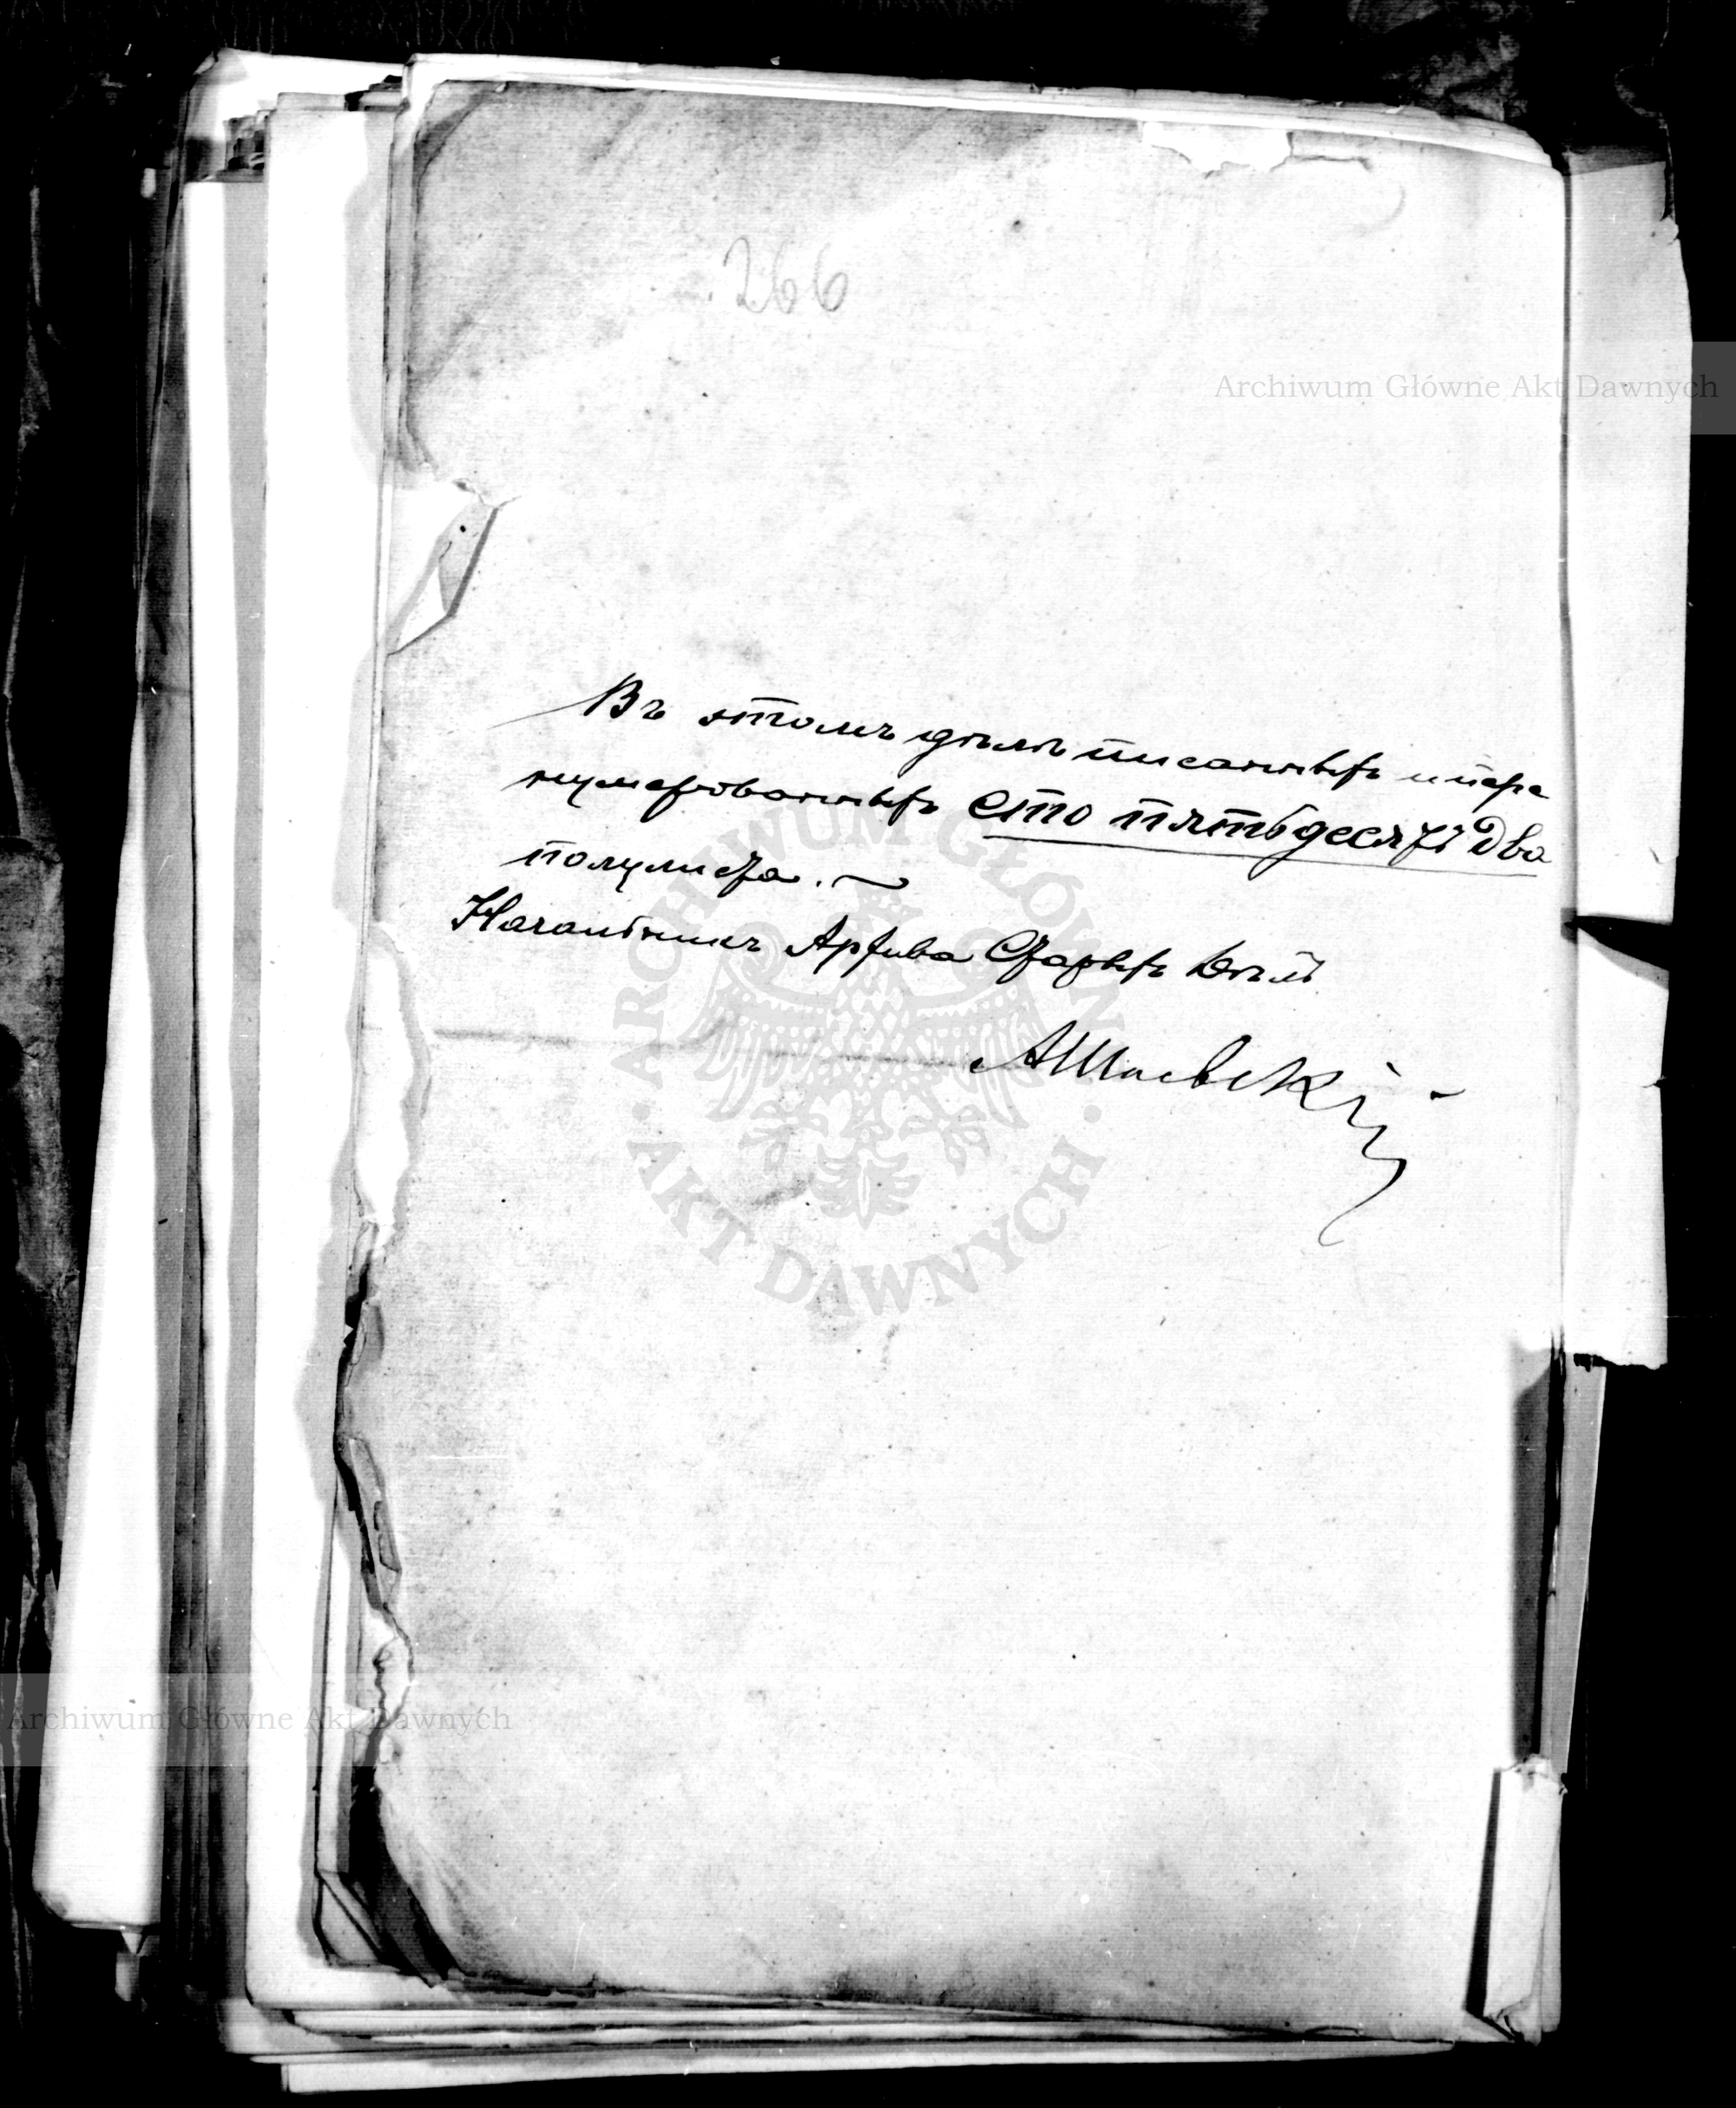 266
Archiwum Główne Akt Dawnych
Въ этомъ дѣлѣ писанныхъ и пере
нумерованныхъ сто пятьдесятъ два
полулиста.
Начальникъ Архива Старыхъ Дѣлъ
ARCHIWUM GŁÓWNE
AKT DAWNYCH
Archiwum Główne Akt Dawnych